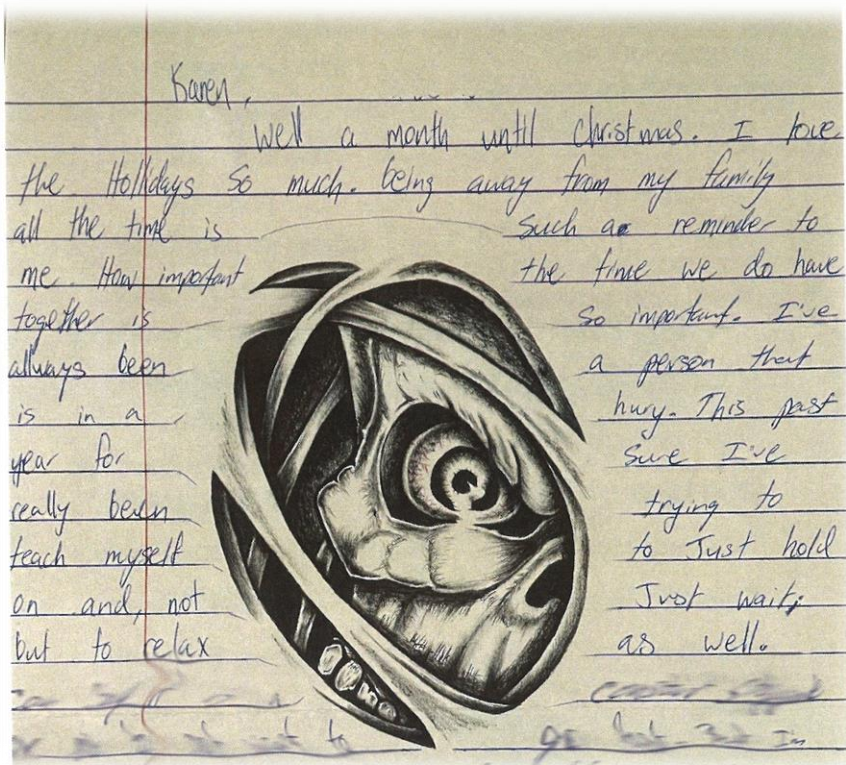 Karen,
Well a month until Christmas. I love
the Hollidays So much. being away from my family
all the time is such a reminder to
me. How important the time we do have
together is so important. I've
allways been a person that
is in a hury. This past
year for Sure I've
really been trying to
teach myself to Just hold
on and, not Just wait;
but to relax as well.
to go but I'm